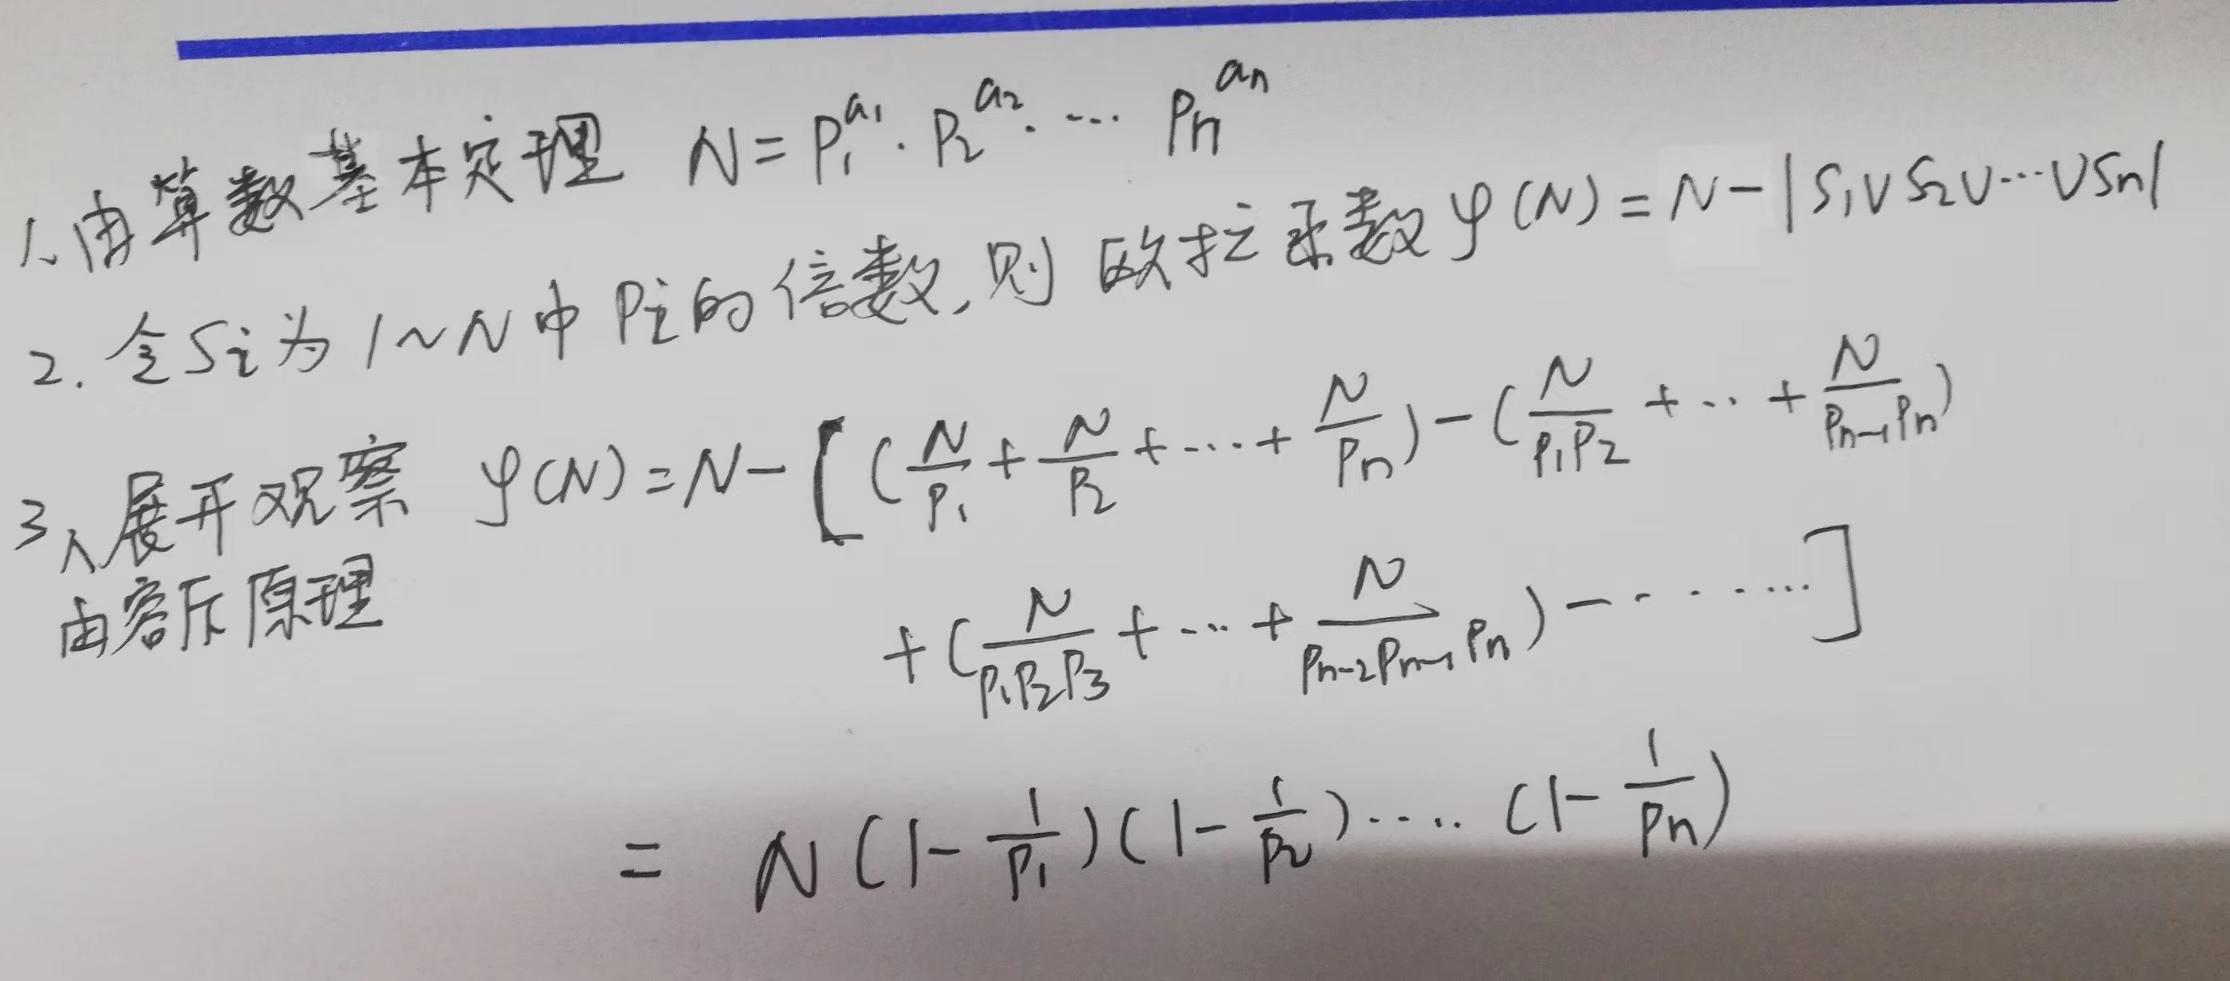 1、由算数基本定理 N=P₁^a₁·P₂^a₂·…Pₙ^aₙ
2.令Sᵢ为1~N中Pᵢ的倍数,则欧拉函数φ(N)=N-|S₁∪S₂∪…∪Sₙ|
3、展开观察 φ(N)=N-[(N/P₁+N/P₂+…+N/Pₙ)-(N/P₁P₂+…+N/Pₙ₋₁Pₙ)
由容斥原理 +(N/P₁P₂P₃+…+N/Pₙ₋₂Pₙ₋₁Pₙ)-………]
=N(1-1/P₁)(1-1/P₂)….(1-1/Pₙ)